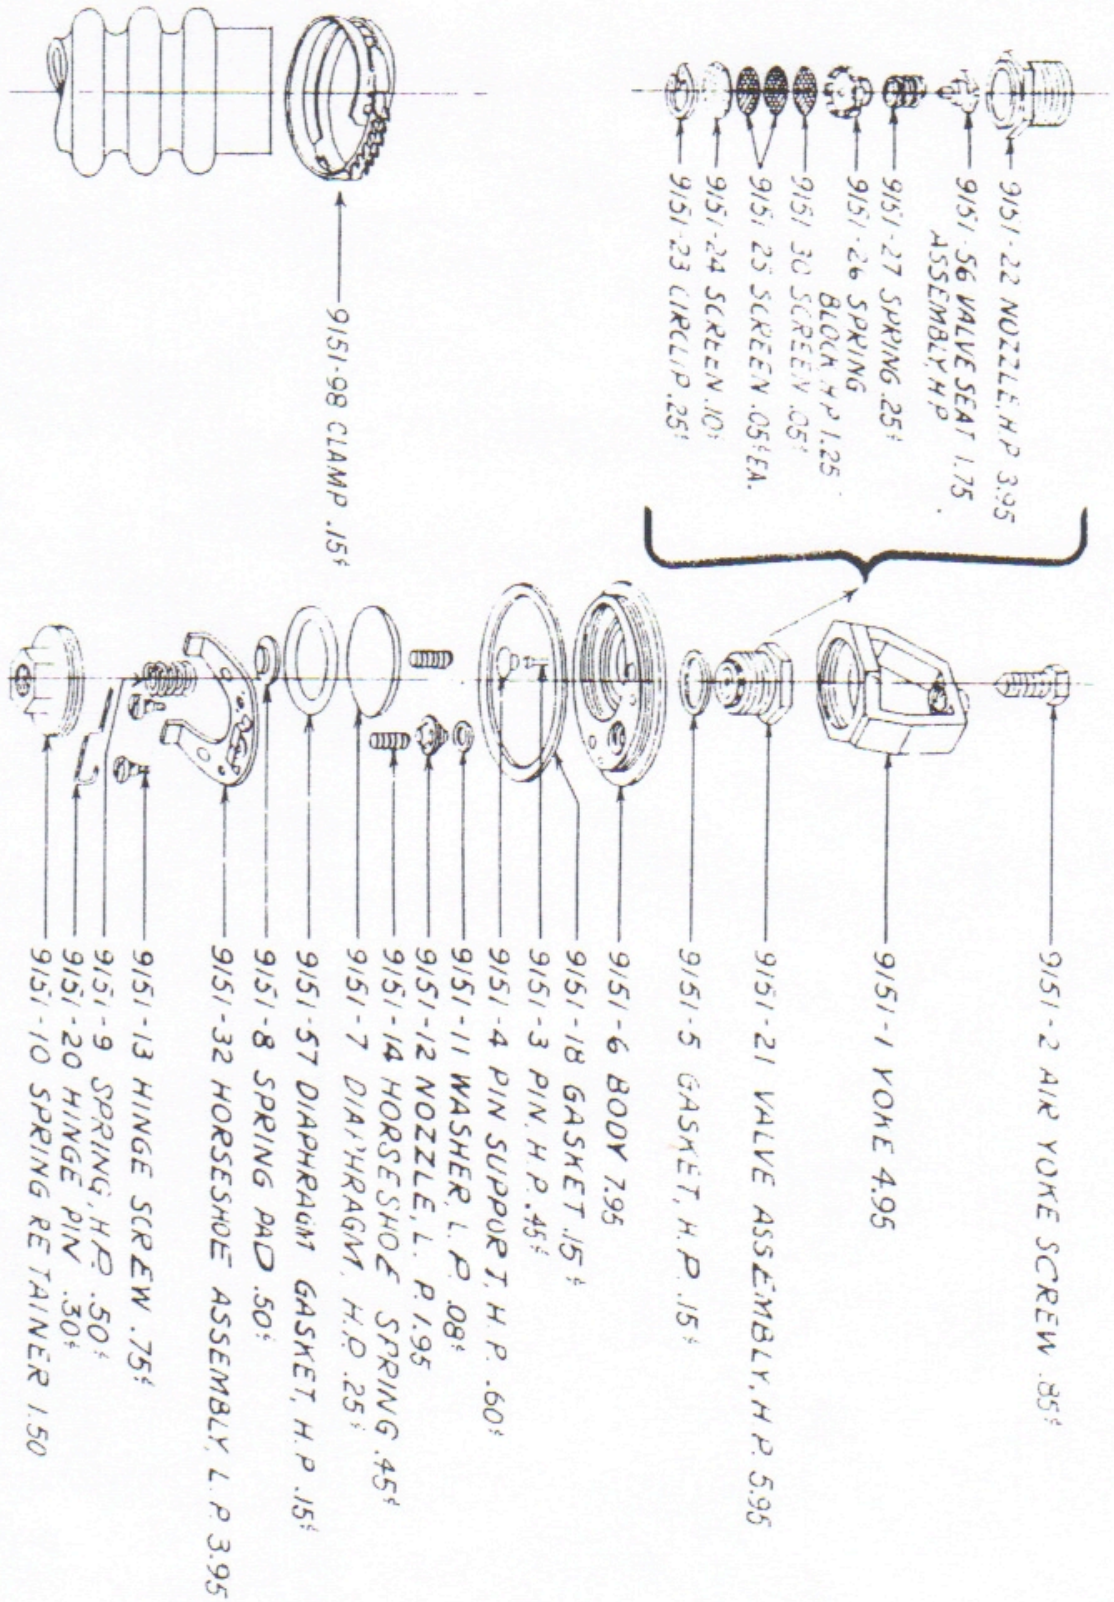 9151-22 NOZZLE, H.P. 3.95
9151-56 VALVE SEAT 1.75
ASSEMBLY, H.P.
9151-27 SPRING .25¢
9151-26 SPRING
BLOCK, H.P. 1.25
9151 30 SCREEN .05¢
9151 25 SCREEN .05¢ EA.
9151-24 SCREEN .10¢
9151-23 CIRCLIP .25¢
9151-98 CLAMP .15¢
9151-2 AIR YOKE SCREW .85¢
9151-1 YOKE 4.95
9151-21 VALVE ASSEMBLY, H.P. 5.95
9151-5 GASKET, H.P. .15¢
9151-6 BODY 7.95
9151-18 GASKET .15¢
9151-3 PIN, H.P. .45¢
9151-4 PIN SUPPORT, H.P. .60¢
9151-11 WASHER, L.P. .08¢
9151-12 NOZZLE, L.P. 1.95
9151-14 HORSESHOE SPRING .45¢
9151-7 DIAPHRAGM, H.P. .25¢
9151-57 DIAPHRAGM GASKET, H.P. .15¢
9151-8 SPRING PAD .50¢
9151-32 HORSESHOE ASSEMBLY, L.P. 3.95
9151-13 HINGE SCREW .75¢
9151-9 SPRING, H.P. .50¢
9151-20 HINGE PIN .30¢
9151-10 SPRING RETAINER 1.50